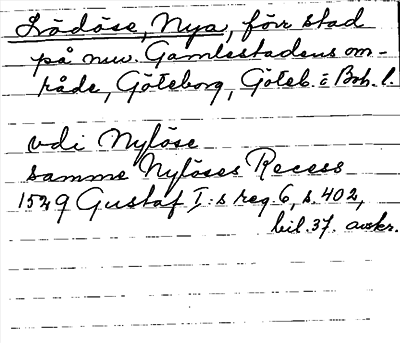 Lödöse, Nya, förr stad
på nuv. Gamlestadens om-
råde, Göteborg, Göteb. o Boh. l.
vdi Nylöse
samme Nylöses Recess
1529 Gustaf I:s reg. 6, s. 402,
bil. 37. avskr.